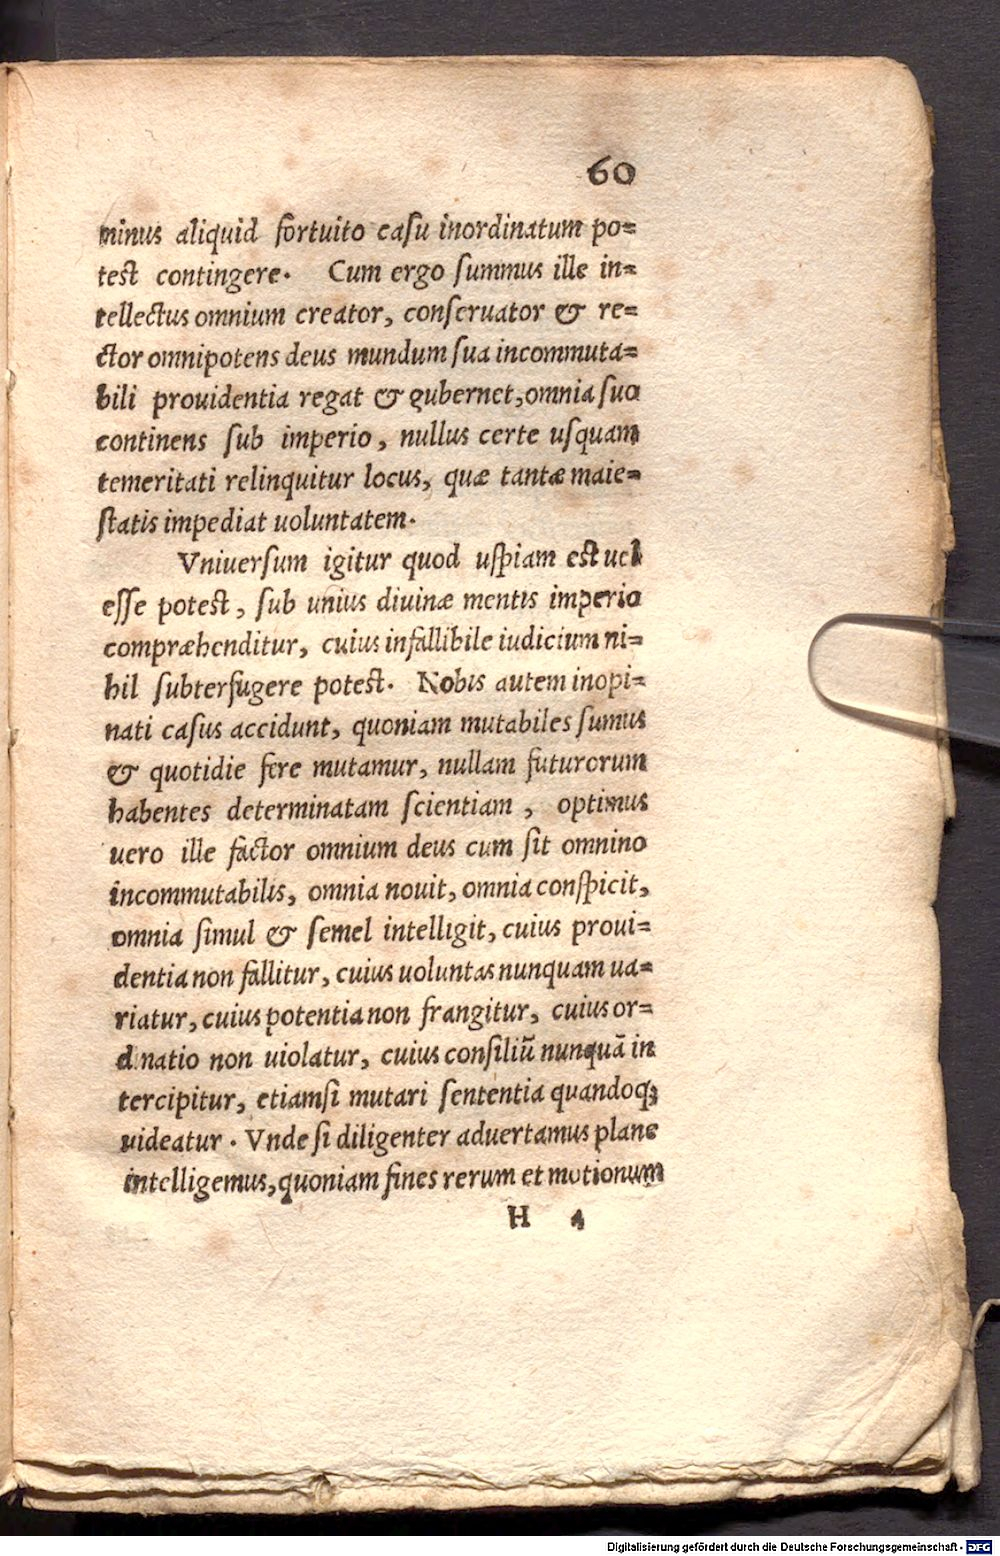 60
minus aliquid fortuito casu inordinatum po=
test contingere. Cum ergo summus ille in=
tellectus omnium creator, conseruator & re=
ctor omnipotens deus mundum sua incommuta=
bili prouidentia regat & gubernet, omnia suo
continens sub imperio, nullus certe usquam
temeritati relinquitur locus, quæ tantæ maie=
statis impediat uoluntatem.
Vniuersum igitur quod uspiam est uel
esse potest, sub unius diuinæ mentis imperio
compræhenditur, cuius infallibile iudicium ni=
hil subterfugere potest. Nobis autem inopi=
nati casus accidunt, quoniam mutabiles sumus
& quotidie fere mutamur, nullam futurorum
habentes determinatam scientiam, optimus
uero ille factor omnium deus cum sit omnino
incommutabilis, omnia nouit, omnia conspicit,
omnia simul & semel intelligit, cuius proui=
dentia non fallitur, cuius uoluntas nunquam ua=
riatur, cuius potentia non frangitur, cuius or=
dinatio non uiolatur, cuius consiliũ nunquã in
tercipitur, etiamsi mutari sententia quandoqꝫ
uideatur. Vnde si diligenter aduertamus plane
intelligemus, quoniam fines rerum et motionum
H 4
Digitalisierung gefördert durch die Deutsche Forschungsgemeinschaft - DFG